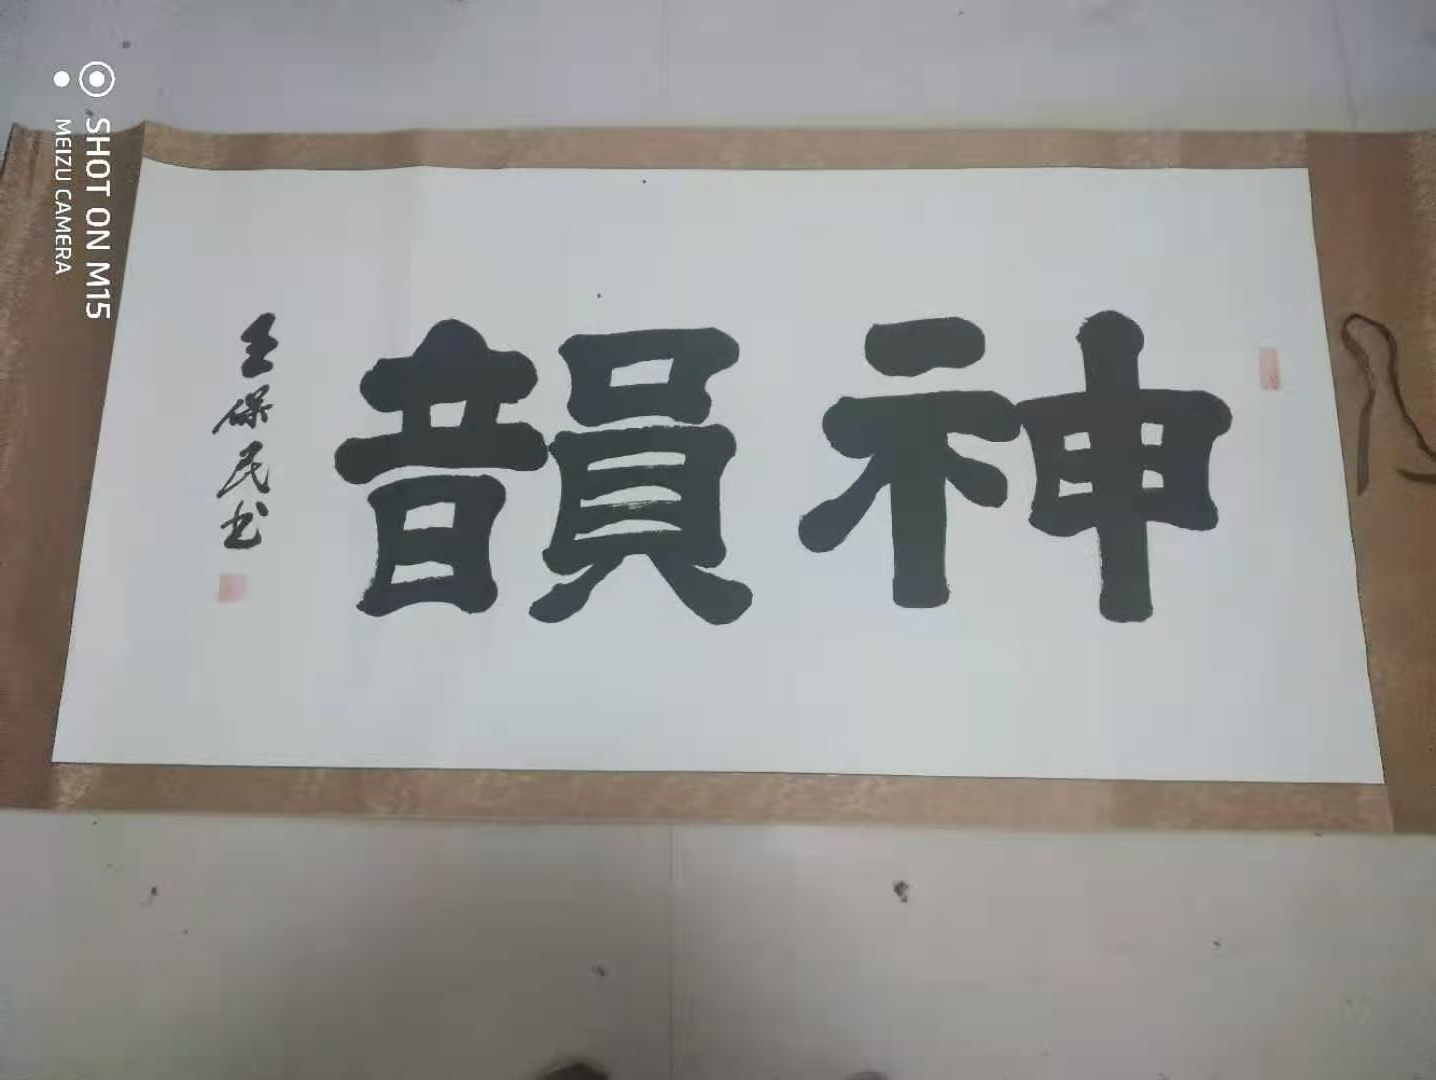 神韻
王保民书
SHOT ON M15
MEIZU CAMERA